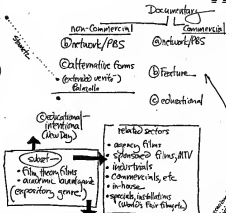 Documentary
non-commercial
commercial
ⓑ network/PBS
ⓐ network/PBS
ⓒ alternative forms
(extended verité)
ⓑ Feature
ⓒ educational
ⓒ educational-
intentional
(New Day)
related sectors
• agency films
• sponsored films, MTV
• industrials
• commercials, etc
• in-house
• specials, installations
(World's Fair filmfests)
subset
• film theory films
• academic
(expository genre)